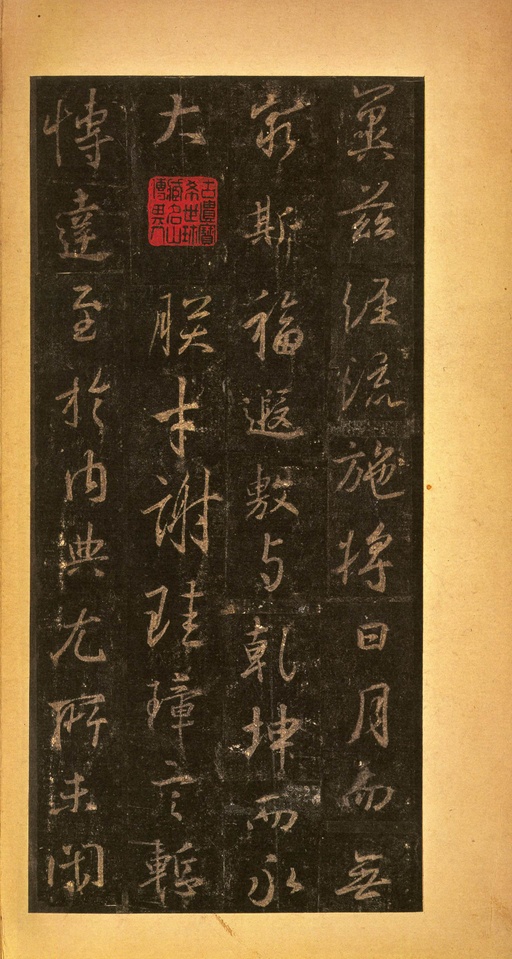 冀茲經流施將日月而無
窮斯福遐敷与乾坤而永
大
朕才謝珪璋言慙
博達至於內典尤所未閑